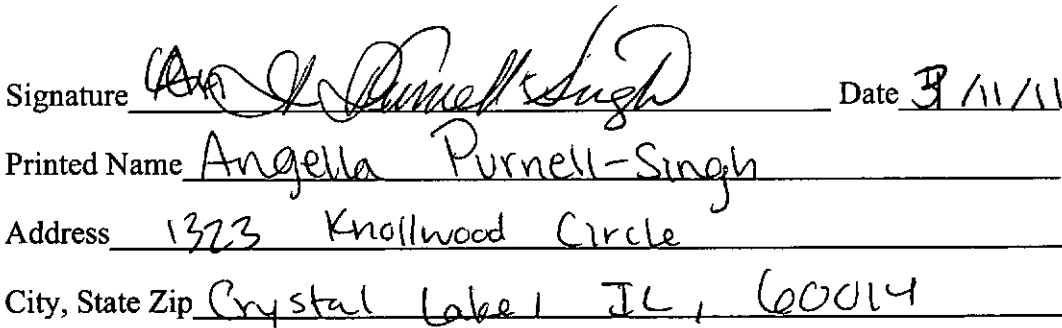 Signature Angella Purnell-Singh Date 3/11/11
Printed Name Angella Purnell-Singh
Address 1323 Knollwood Circle
City, State Zip Crystal Lake, IL, 60014